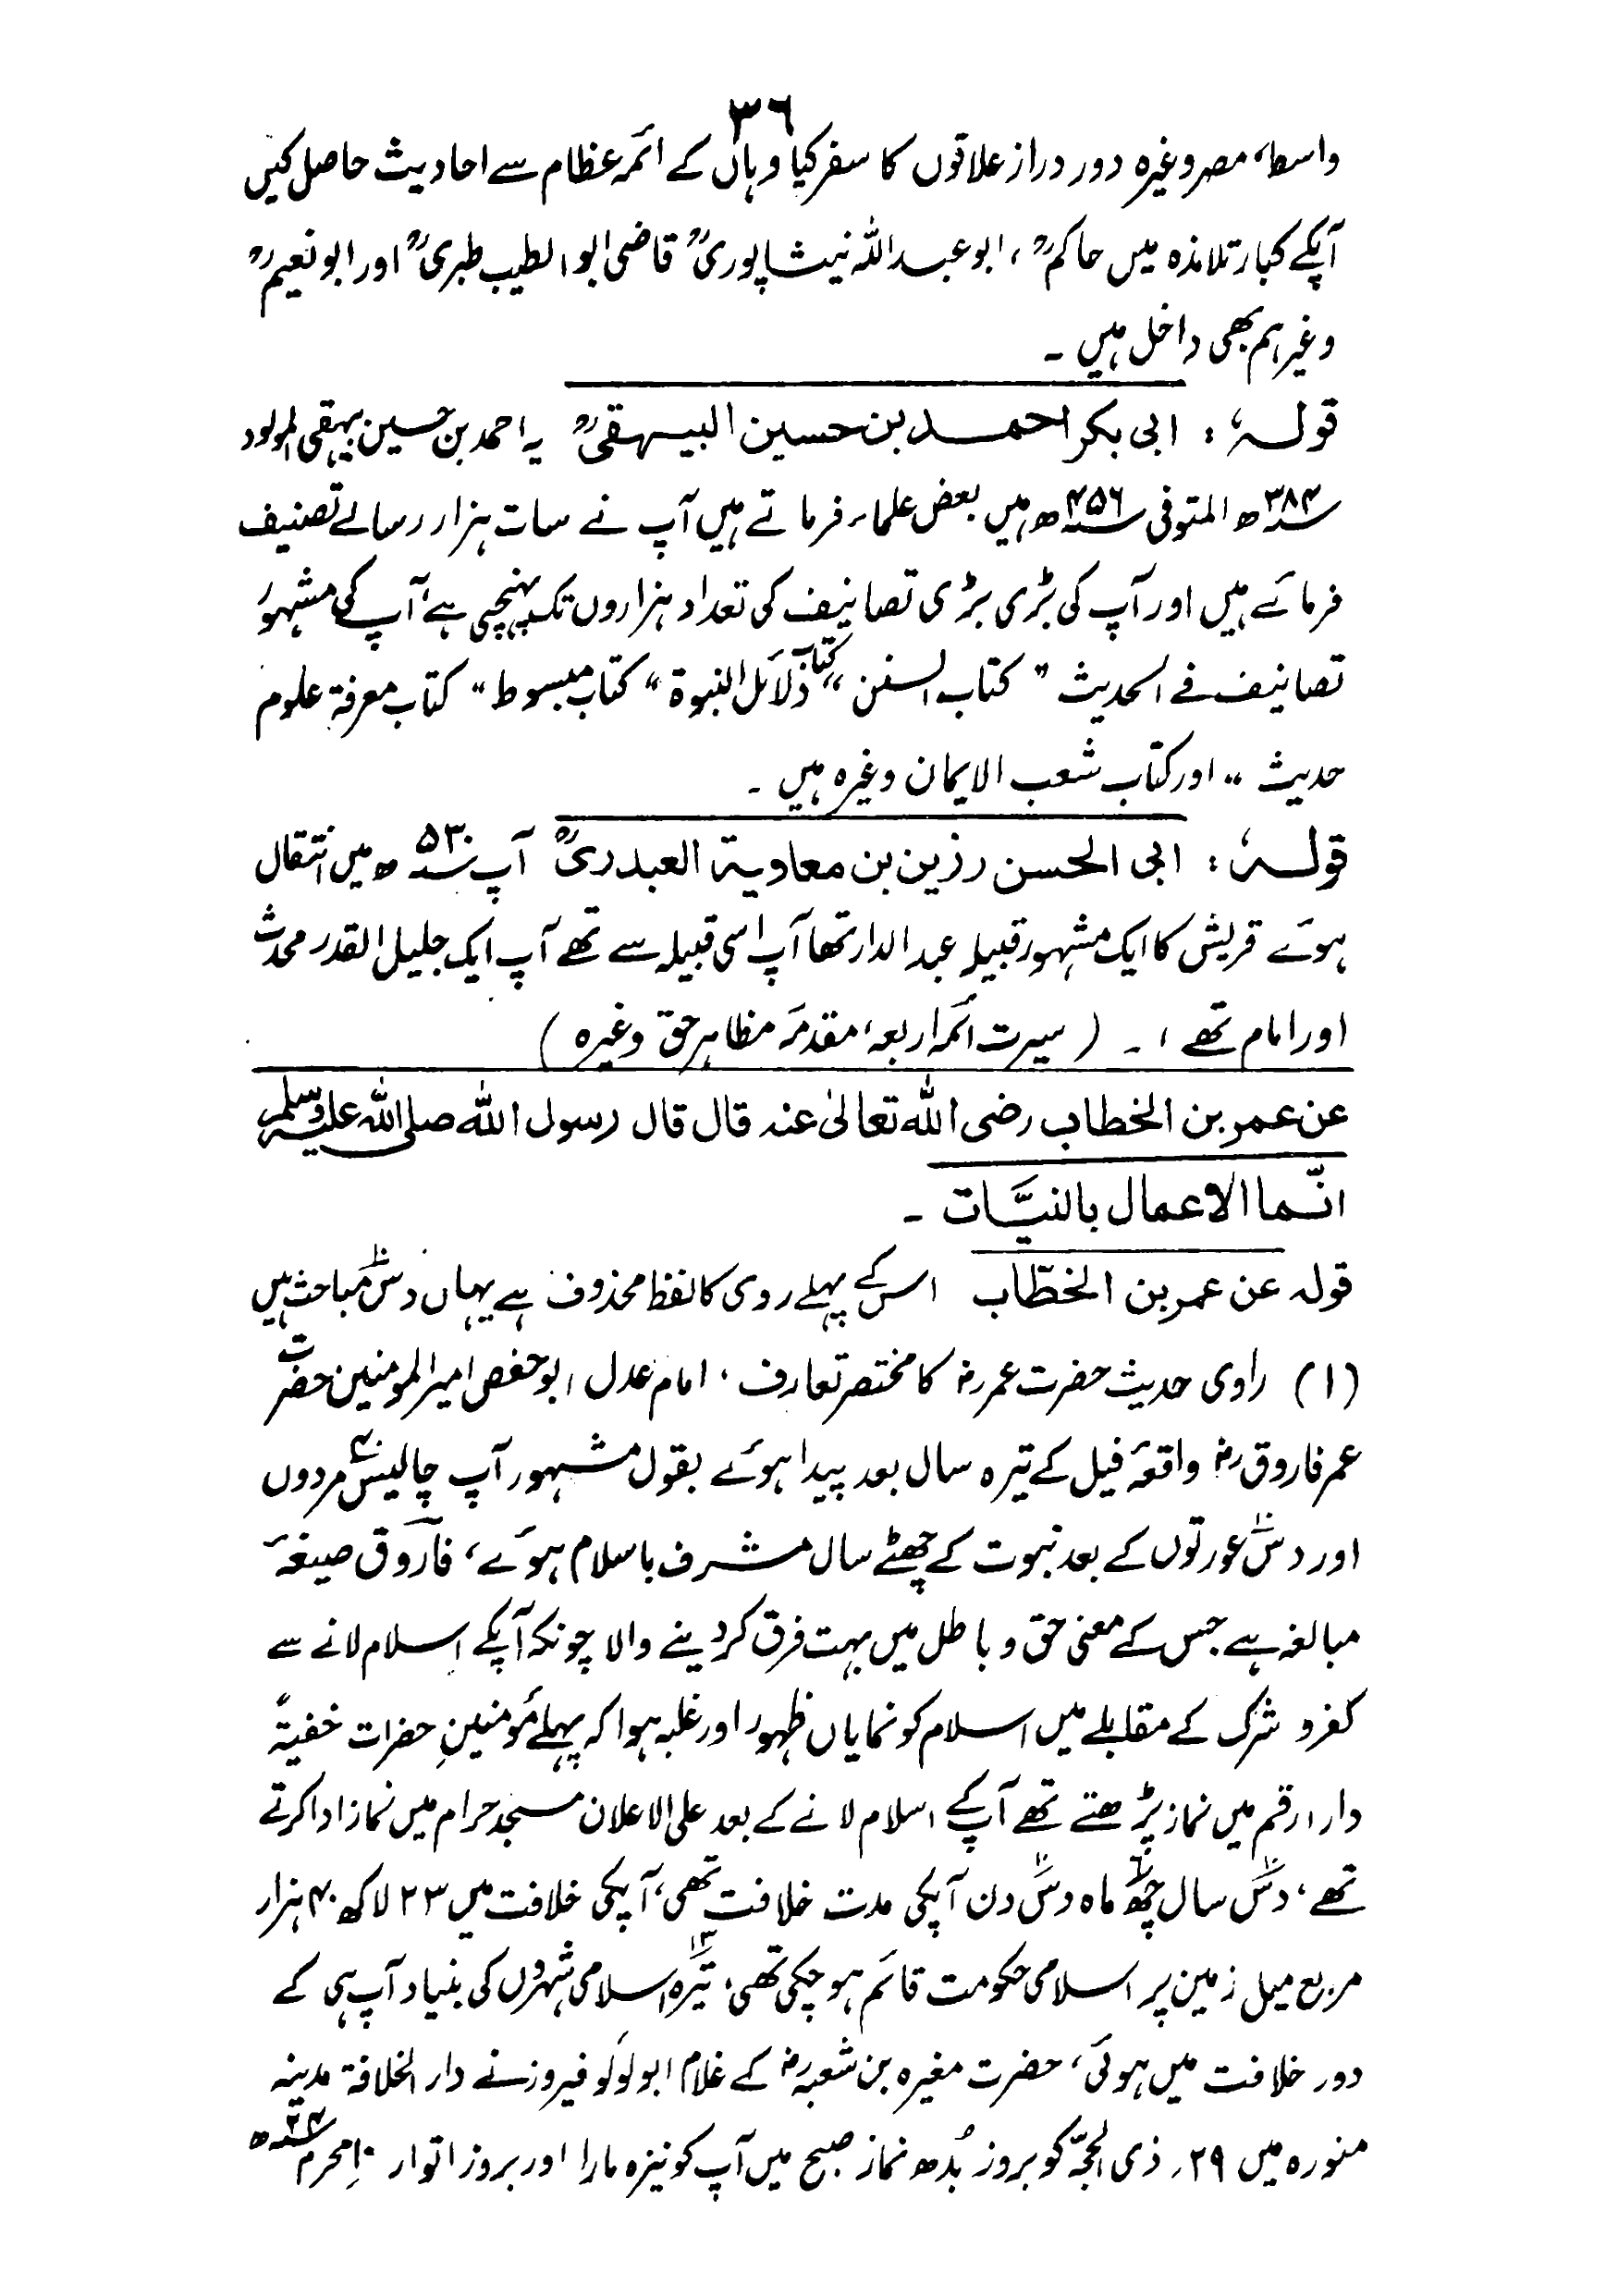 ۳۶
واسط، مصر وغیرہ دور دراز علاقوں کا سفر کیا وہاں کے ائمہ عظام سے احادیث حاصل کیں
آپکے کبار تلامذہ میں حاکمؒ ، ابو عبداللہ نیشاپوریؒ قاضی ابو الطیب طبریؒ اور ابو نعیمؒ
وغیرہم بھی داخل ہیں ۔
قولہٗ : ابی بکر احمد بن حسین البیہقیؒ یہ احمد بن حسین بیہقی المولود
سنہ ۳۸۴ھ المتوفی سنہ ۴۵۶ھ ہیں بعض علماء فرماتے ہیں آپ نے سات ہزار رسالے تصنیف
فرمائے ہیں اور آپ کی بڑی بڑی تصانیف کی تعداد ہزاروں تک پہنچی ہے، آپ کی مشہور
تصانیف فے الحدیث " کتاب السنن " کتاب دلائل النبوۃ " کتاب مبسوط " کتاب معرفۃ علوم
حدیث " اور کتاب شعب الایمان وغیرہ ہیں ۔
قولہٗ : ابی الحسن رزین بن معاویۃ العبدریؒ آپ سنہ ۵۳۰ھ میں انتقال
ہوئے قریش کا ایک مشہور قبیلہ عبد الدار تھا آپ اسی قبیلہ سے تھے آپ ایک جلیل القدر محدث
اور امام تھے ، ۔ ( سیرت ائمہ اربعہ، مقدمۂ مظاہر حق وغیرہ )
عن عمر بن الخطاب رضی اللہ تعالیٰ عنہ قال قال رسول اللہ صلی اللہ علیہ وسلم
انّما الاعمال بالنیَّات ۔
قولہ عن عمر بن الخطّاب اس کے پہلے روی کا لفظ محذوف ہے یہاں دس۱۰ مباحث ہیں
(۱) راوی حدیث حضرت عمرؓ کا مختصر تعارف ، امام عدل ، ابو حفص امیر المومنین حضرت
عمر فاروقؓ واقعۂ فیل کے تیرہ سال بعد پیدا ہوئے بقول مشہور آپ چالیس۴۰ مردوں
اور دس۱۰ عورتوں کے بعد نبوت کے چھٹے سال مشرف باسلام ہوئے، فاروق صیغۂ
مبالغہ ہے جس کے معنی حق و باطل میں بہت فرق کر دینے والا چونکہ آپکے اسلام لانے سے
کفر و شرک کے مقابلے میں اسلام کو نمایاں ظہور اور غلبہ ہوا کہ پہلے مؤمنینِ حضرات خفیۃً
دار ارقم میں نماز پڑھتے تھے آپکے اسلام لانے کے بعد علی الاعلان مسجد حرام میں نماز ادا کرتے
تھے، دس۱۰ سال چھ۶ ماہ دس۱۰ دن آپکی مدت خلافت تھی، آپکی خلافت میں ۲۳ لاکھ ۴۰ ہزار
مربع میل زمین پر اسلامی حکومت قائم ہو چکی تھی، تیرہ۱۳ اسلامی شہروں کی بنیاد آپ ہی کے
دور خلافت میں ہوئی، حضرت مغیرہ بن شعبہؓ کے غلام ابو لؤلؤ فیروز نے دار الخلافۃ مدینہ
منورہ میں ۲۹؍ ذی الحجّہ کو بروز بُدھ نماز صبح میں آپ کو نیزہ مارا اور بروز اتوار ۱۰ محرم سنہ ۲۴ھ